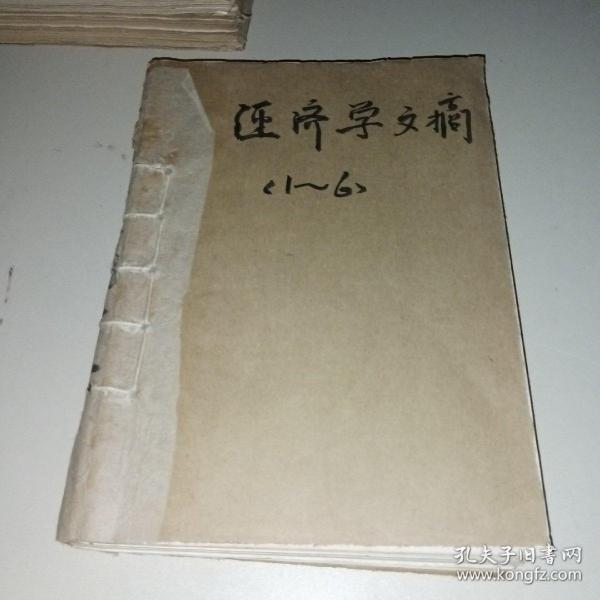 经济学文摘
<1~6>
孔夫子旧书网
www.kongfz.com